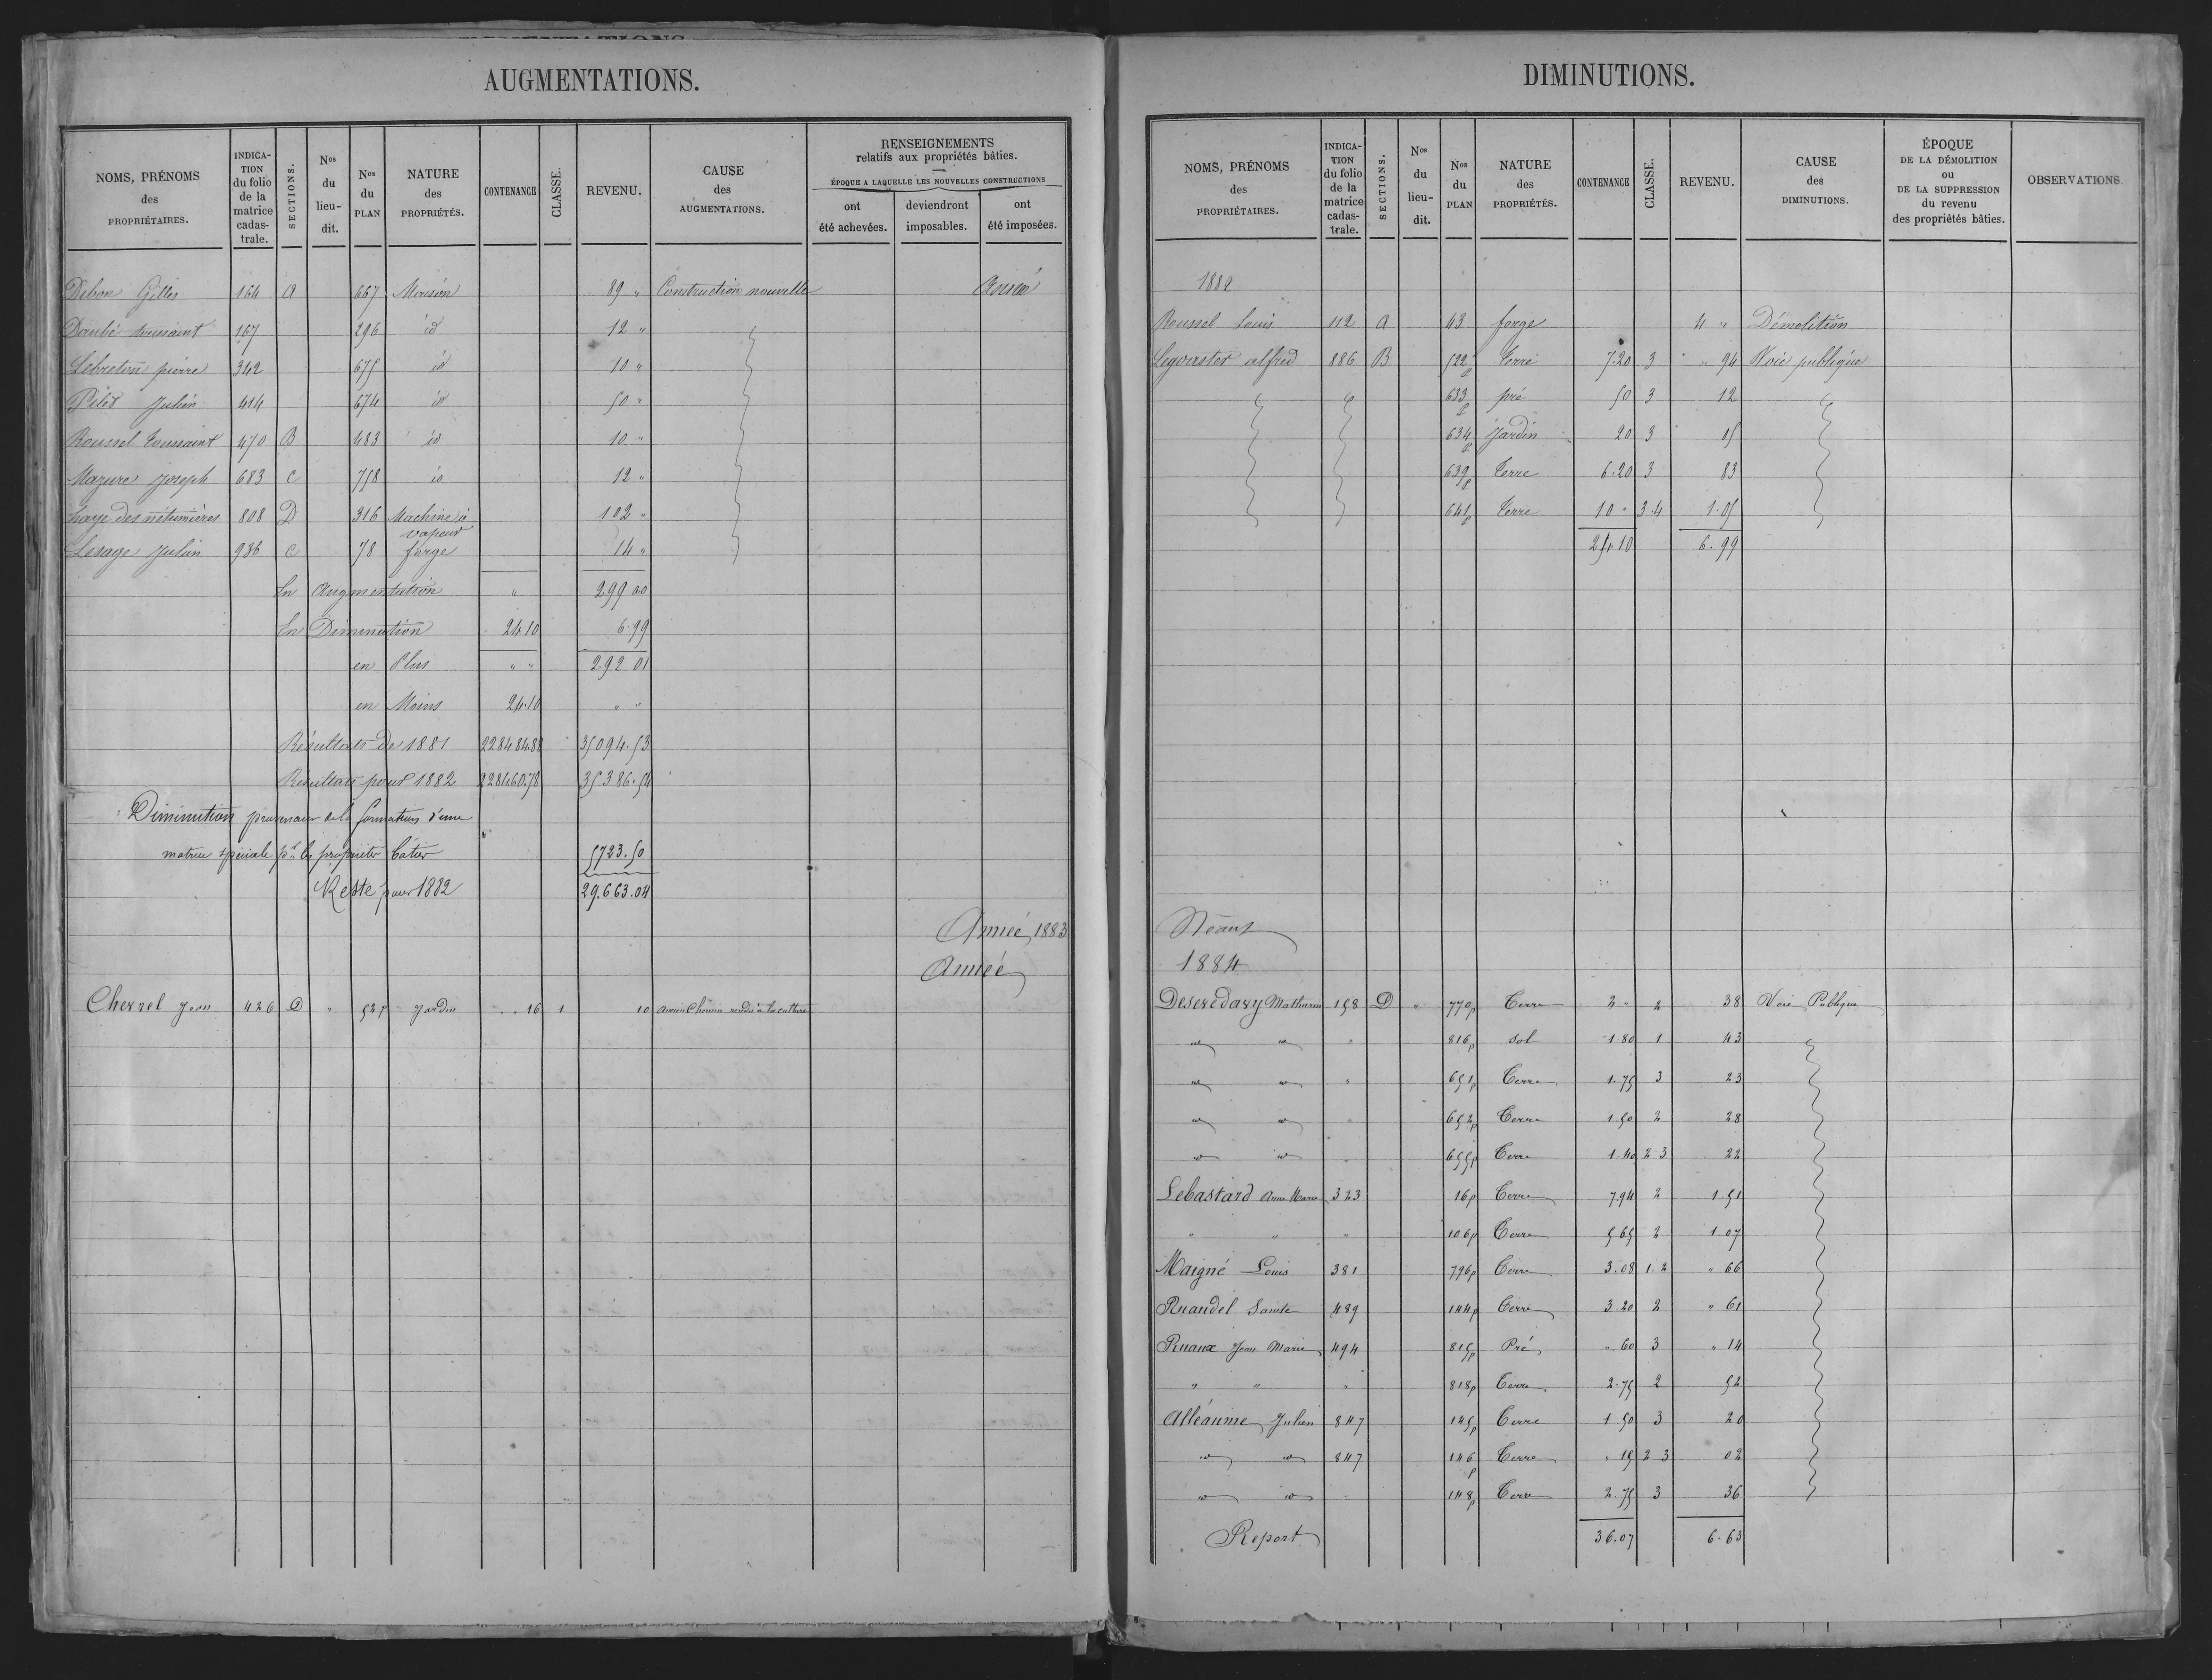 AUGMENTATIONS.
NOMS, PRÉNOMS des PROPRIÉTAIRES. INDICATION du folio de la matrice cadastrale. SECTIONS. Nos du lieu-dit. Nos du PLAN NATURE des PROPRIÉTÉS. CONTENANCE CLASSE. REVENU. CAUSE des AUGMENTATIONS. RENSEIGNEMENTS relatifs aux propriétés bâties. ÉPOQUE A LAQUELLE LES NOUVELLES CONSTRUCTIONS ont été achevées. deviendront imposables. ont été imposées.
Debon Gilles 164 A 667 Maison 89 " Construction nouvelle
Daubé toussaint 167 296 id 12 "
Lebreton pierre 342 675 id 10 "
Pilet Julien 414 674 id 50 "
Roussel Toussaint 470 B 483 id 10 "
Mazure Joseph 683 C 758 id 12 "
haye des nétumières 808 D 316 Machine à vapeur 102 "
Lesage Julien 936 C 78 forge 14 "
En Augmentation " 299 00
En Diminution 24.10 6.99
en Plus " " 292 01
en Moins 24.10 " "
Résultats de 1881 228484.88 35094.53
Résultats pour 1882 228460.78 35386.54
Diminution provenant de la formation d'une
matrice spéciale pr les propriétés bâties 5723.50
Reste pour 1882 29.663.04
Année 1883
Année
Chernel Jean 426 D " 525 Jardin " " 16 1 10 ancien Chemin rendu à la culture
DIMINUTIONS.
NOMS, PRÉNOMS des PROPRIÉTAIRES. INDICATION du folio de la matrice cadastrale. SECTIONS. Nos du lieu-dit. Nos du PLAN NATURE des PROPRIÉTÉS. CONTENANCE CLASSE. REVENU. CAUSE des DIMINUTIONS. ÉPOQUE DE LA DÉMOLITION ou DE LA SUPPRESSION du revenu des propriétés bâties. OBSERVATIONS.
1882
Roussel Louis 112 A 43 forge 4 " Démolition
alfred 886 B 522p Terre 7.20 3 " 94 Voie publique
633p pré 50 3 12
634p Jardin 20 3 05
639p Terre 6.20 3 83
641p Terre 10 " 3.4 1.05
24.10 6.99
Néant
1884
Deseredavy Mathurin 158 D " 779p Terre 2 " 2 38 Voie Publique
id id " 816p sol 1.80 1 43
id id " 651p Terre 1.75 3 23
id id " 652p Terre 1.50 2 28
id id 655p Terre 1.40 2 3 22
Lebastard Anne Marie 323 16p Terre 7.94 2 1.51
" " " 106p Terre 5.65 2 1.07
Maigné Louis 381 796p Terre 3.08 1.2 " 66
Ruaudel Sainte 489 144p Terre 3.20 2 " 61
Ruaux Jean Marie 494 815p Pré " 60 3 " 14
" " " 818p Terre 2.75 2 52
Alléaume Julien 847 145p Terre 1.50 3 20
id id 847 146p Terre " 15 2 3 02
id id 148p Terre 2.75 3 36
Report 36.07 6.63